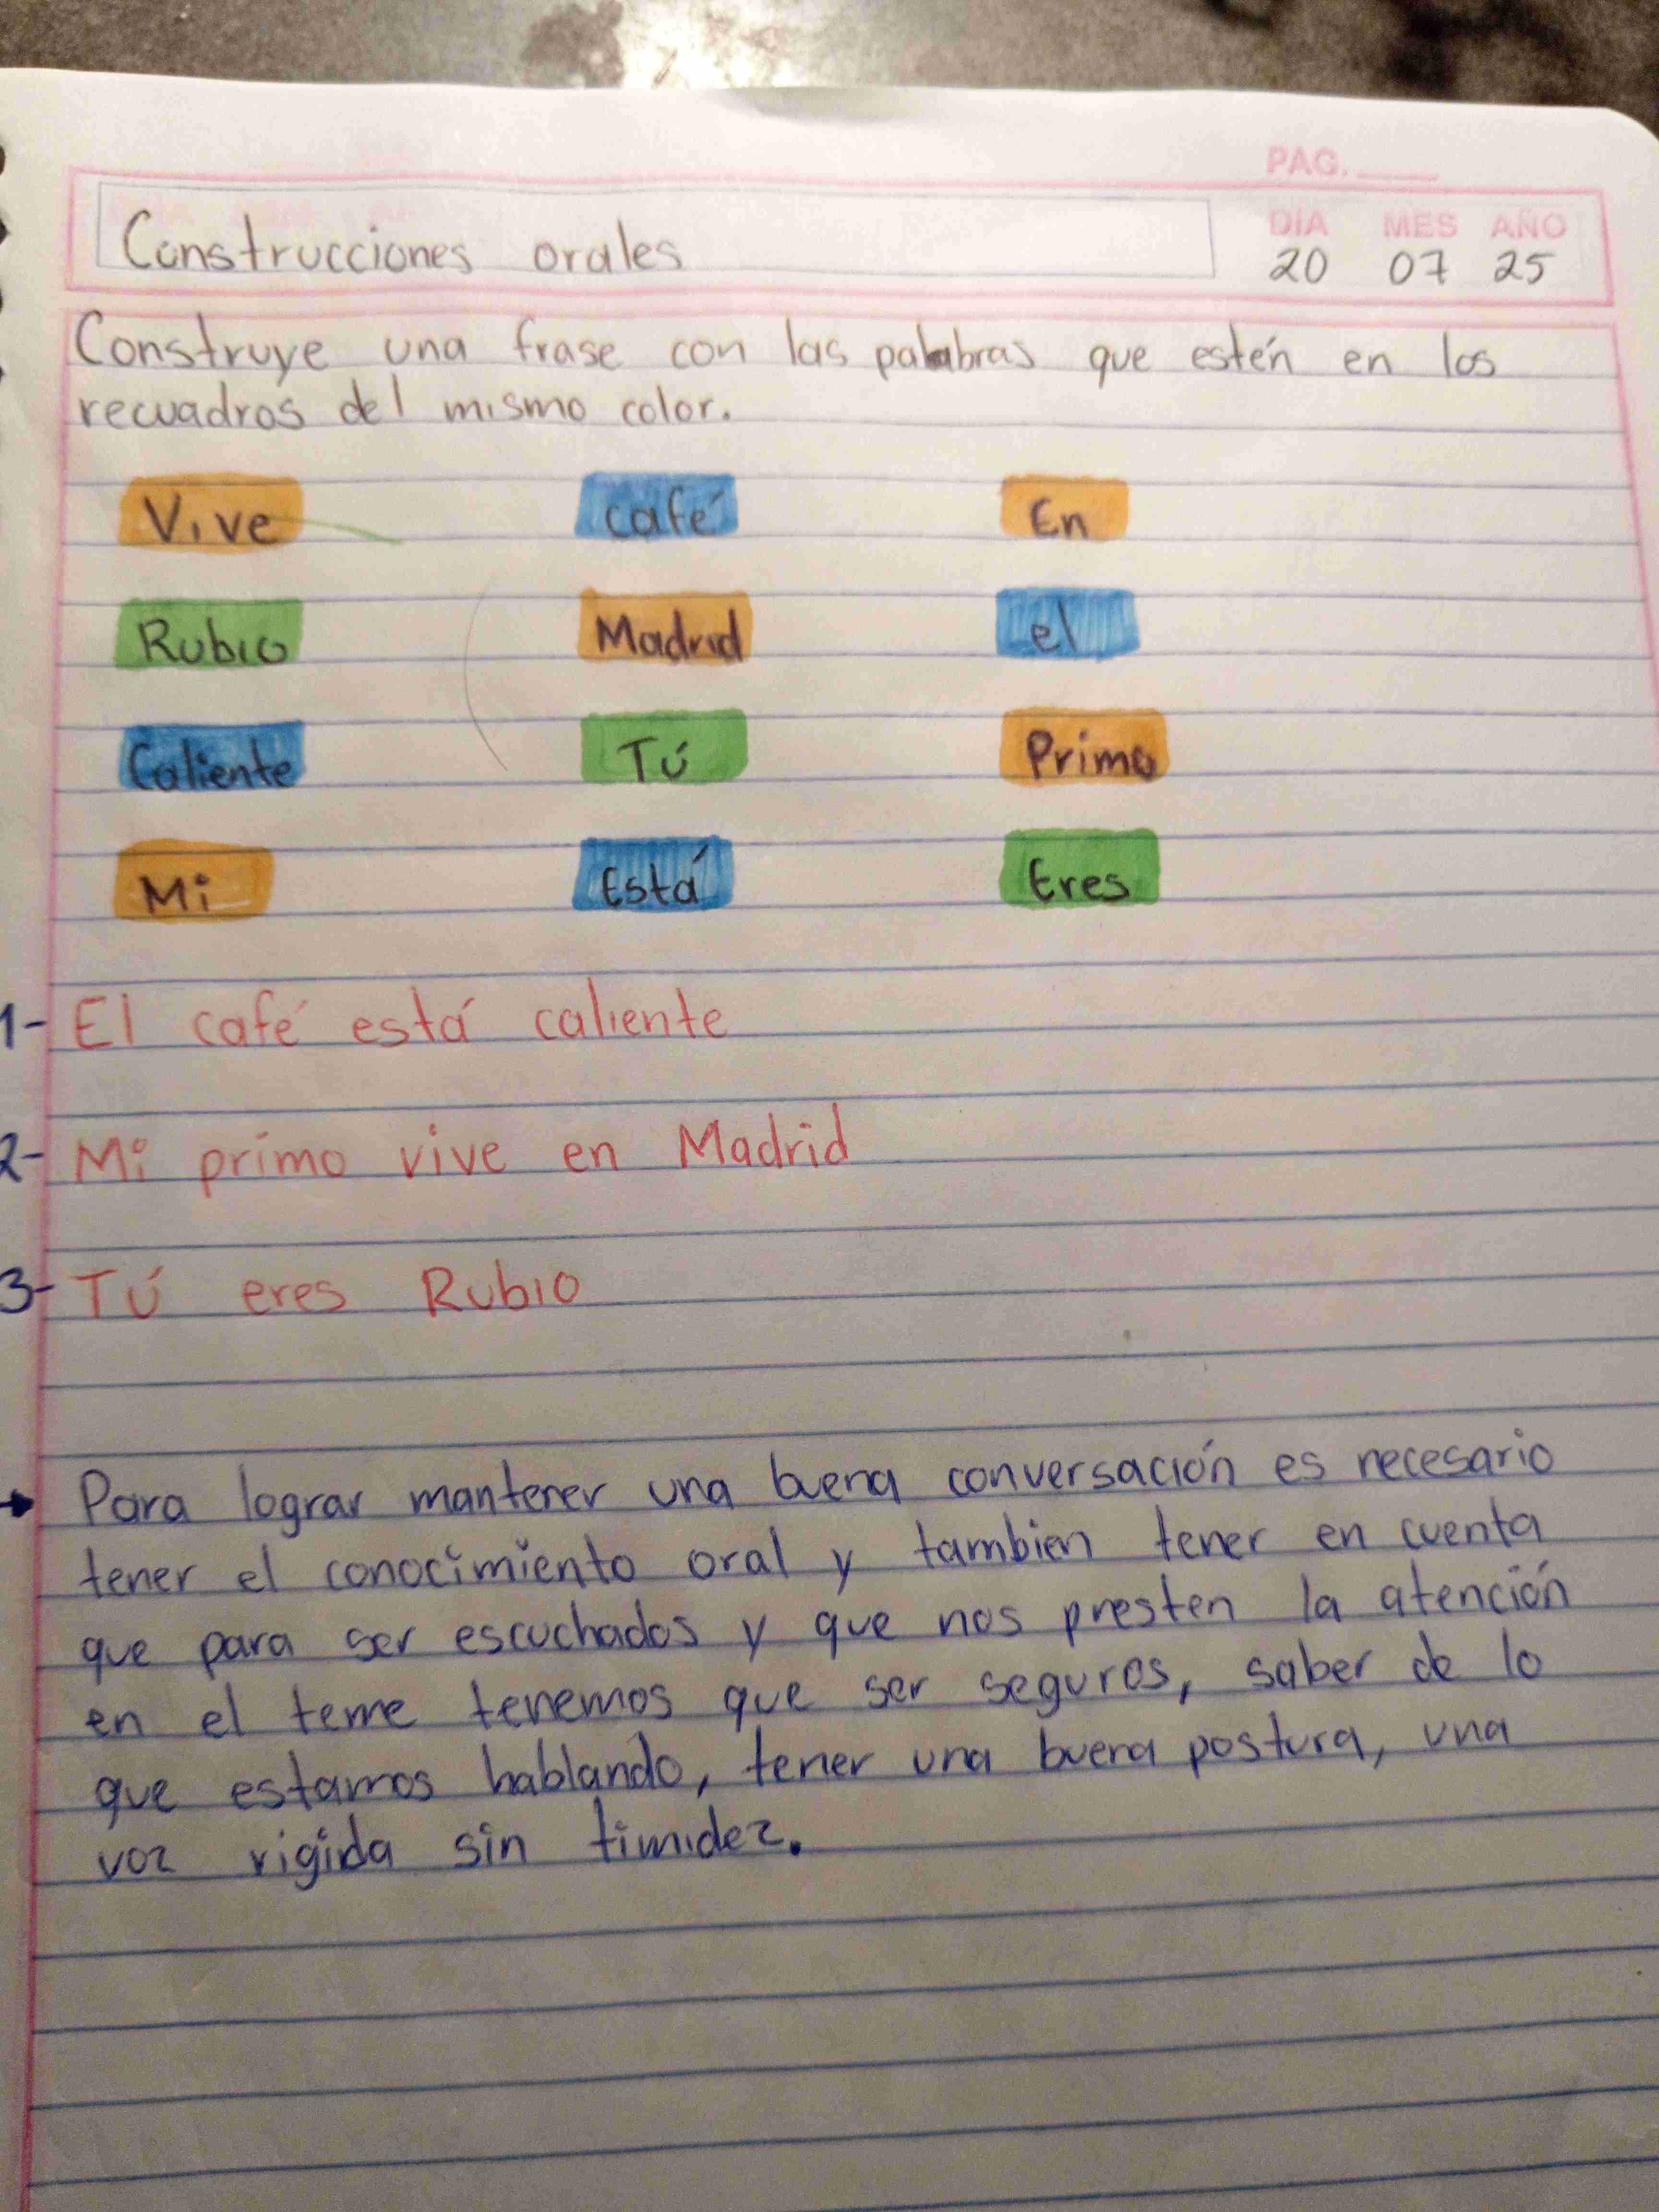 PAG.
DÍA MES AÑO
Construcciones orales 20 07 25
Construye una frase con las palabras que estén en los
recuadros del mismo color.
Vive café En
Rubio Madrid el
Caliente Tú Primo
Mi Está Eres
1- El café está caliente
2- Mi primo vive en Madrid
3- Tú eres Rubio
→ Para lograr mantener una buena conversación es necesario
tener el conocimiento oral y tambien tener en cuenta
que para ser escuchados y que nos presten la atención
en el teme tenemos que ser seguros, saber de lo
que estamos hablando, tener una buena postura, una
voz rigida sin timidez.